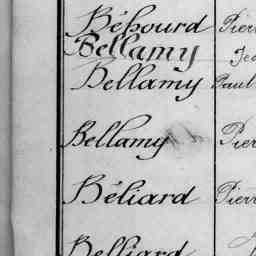 Béhourd Pierr
Bellamy Jea
Bellamy Paul
Bellamy Pier
Béliard Pierr
Belliard